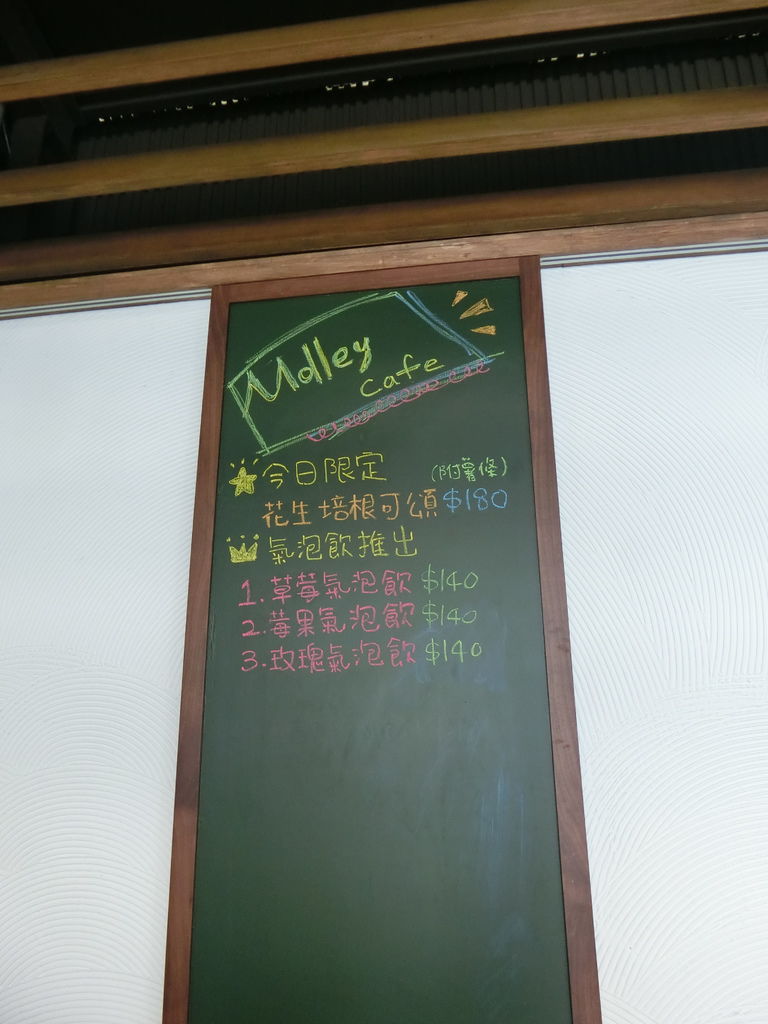 Molley
Cafe
今日限定 (附薯條)
花生培根可頌 $180
氣泡飲推出
1. 草莓氣泡飲 $140
2. 莓果氣泡飲 $140
3. 玫瑰氣泡飲 $140